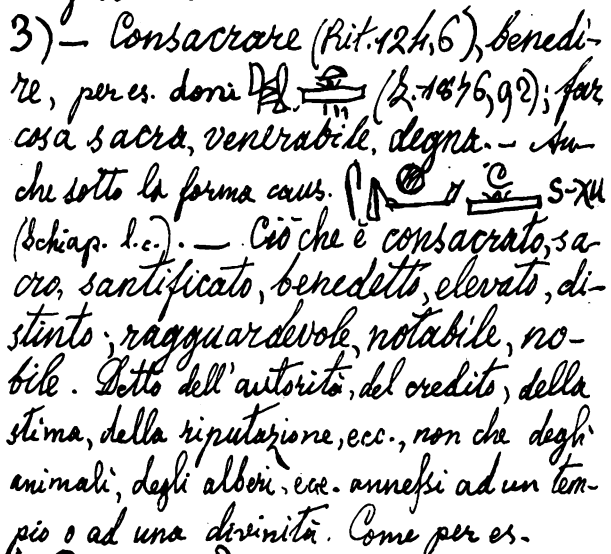 3)— Consacrare (Rit. 124,6), benedi-
re, per es. doni (Z. 1876,92); far
cosa sacra, venerabile, degna. — An-
che sotto la forma caus. S-XU
(Schiap. l.c.). — Ciò che è consacrato, sa-
cro, santificato, benedetto, elevato, di-
stinto; ragguardevole, notabile, no-
bile. Detto dell'autorità, del credito, della
stima, della riputazione, ecc., non che degli
animali, degli alberi, ecc. annessi ad un tem-
pio o ad una divinità. Come per es.